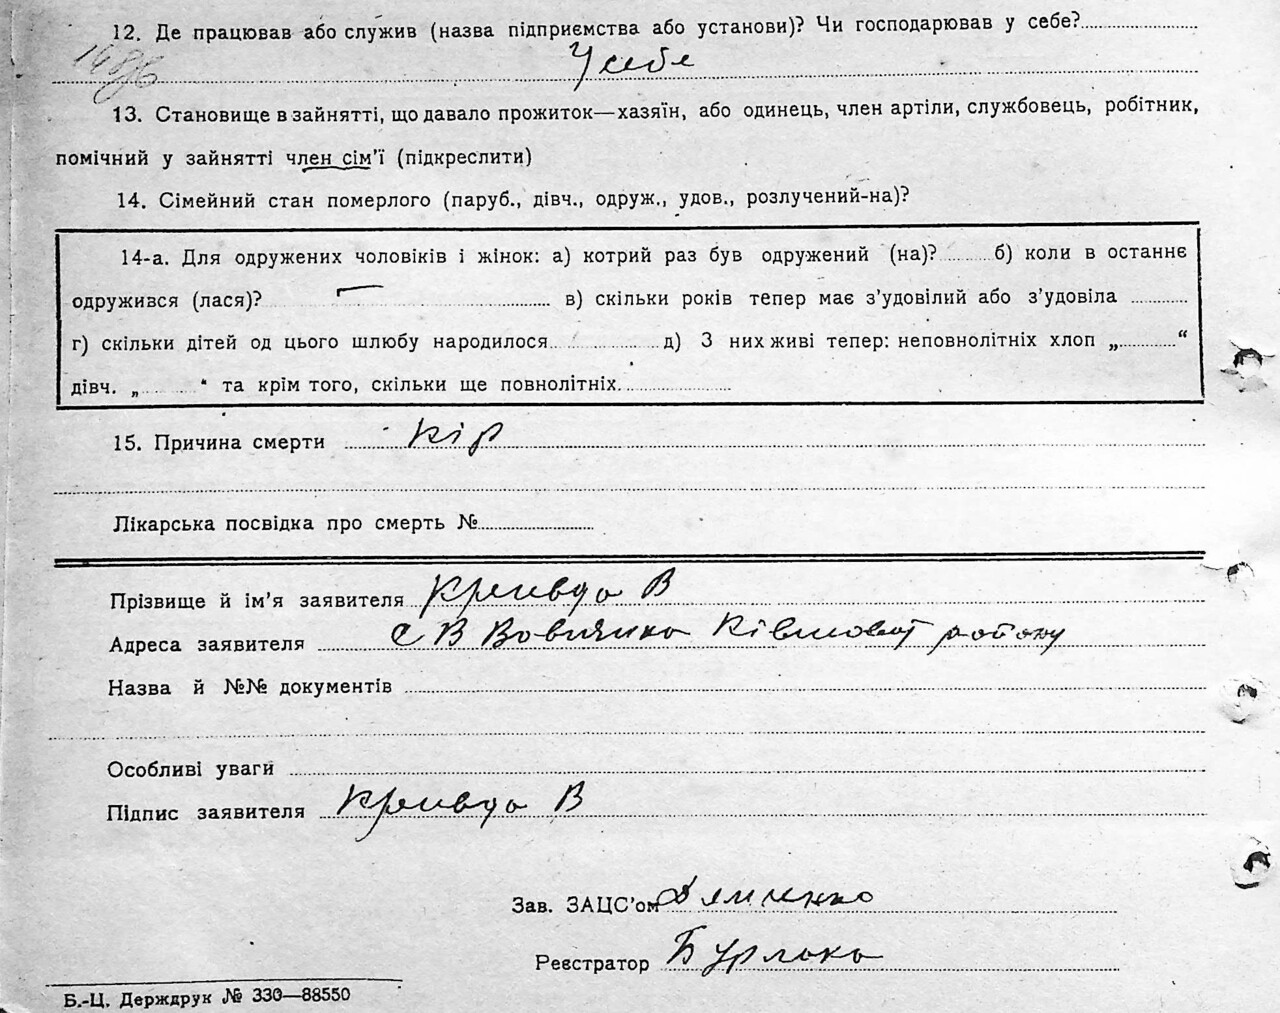 12. Де працював або служив (назва підприємства або установи)? Чи господарював у себе?
У себе
13. Становище в зайнятті, що давало прожиток—хазяїн, або одинець, член артіли, службовець, робітник,
помічний у зайнятті член сім'ї (підкреслити)
14. Сімейний стан померлого (паруб., дівч., одруж., удов., розлучений-на)?
14-а. Для одружених чоловіків і жінок: а) котрий раз був одружений (на)? б) коли в останнє
одружився (лася)? в) скільки років тепер має з'удовілий або з'удовіла
г) скільки дітей од цього шлюбу народилося д) З них живі тепер: неповнолітніх хлоп „ “
дівч. „ “ та крім того, скільки ще повнолітніх.
15. Причина смерти кір
Лікарська посвідка про смерть №
Прізвище й ім'я заявителя Кривда В
Адреса заявителя С В Вовнянка району
Назва й №№ документів
Особливі уваги
Підпис заявителя Кривда В
Зав. ЗАЦС'ом
Реєстратор Бурлака
Б.-Ц. Держдрук № 330—88550